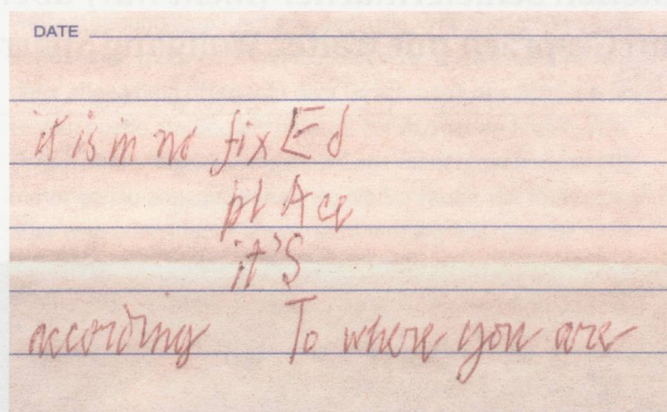 DATE
it is in no fixEd
plAce
it's
according To where you are